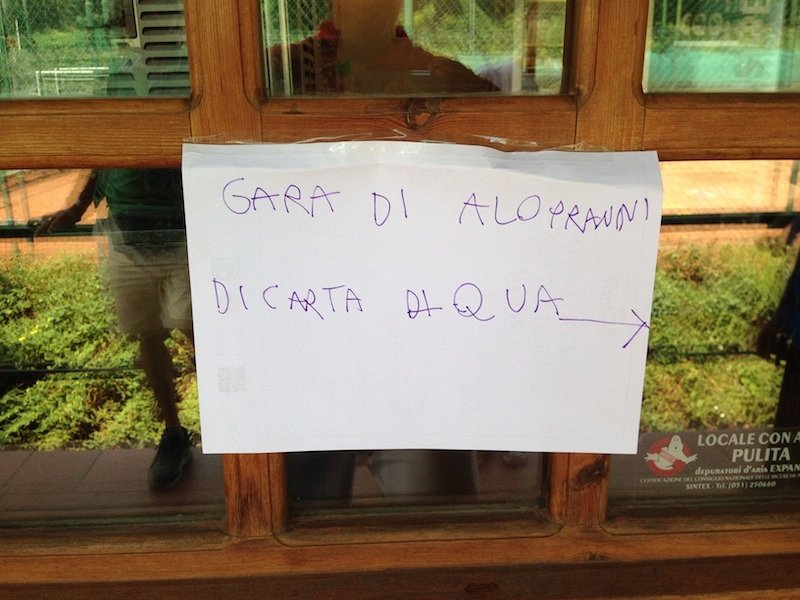 GARA DI ALOPRANNI
DI CARTA DI QUA
LOCALE CON A
PULITA
depuratori d'aria EXPAN
CERTIFICAZIONI DEL CONSIGLIO NAZIONALE DELLE RICERCHE
SINTEX - Tel. (051) 250660